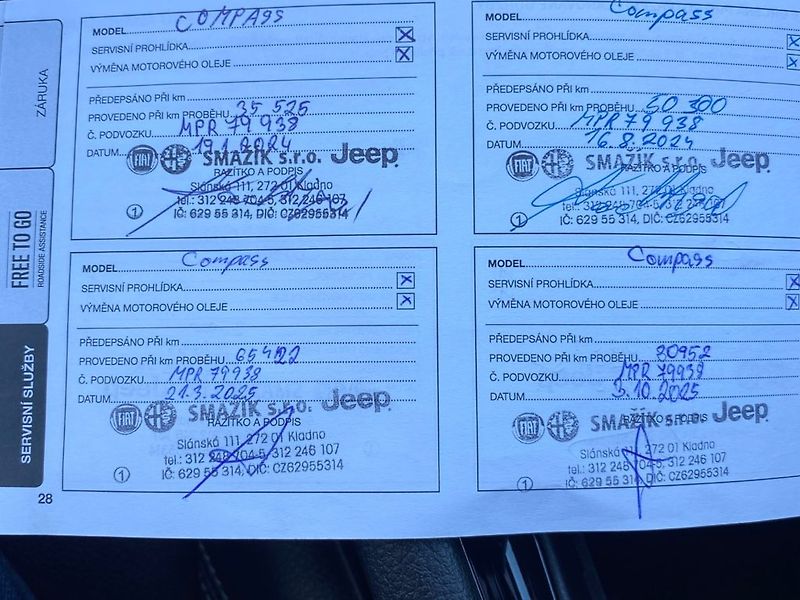 ZÁRUKA
FREE TO GO
ROADSIDE ASSISTANCE
SERVISNÍ SLUŽBY
MODEL COMPASS
SERVISNÍ PROHLÍDKA X
VÝMĚNA MOTOROVÉHO OLEJE X
PŘEDEPSÁNO PŘI km
PROVEDENO PŘI km PROBĚHU 35 525
Č. PODVOZKU MPR 79 938
DATUM 19.1.2024
FIAT SMAZÍK s.r.o. Jeep
RAZÍTKO A PODPIS
Slánská 111, 272 01 Kladno
tel.: 312 248 704-5, 312 246 107
1 IČ: 629 55 314, DIČ: CZ62955314
MODEL Compass
SERVISNÍ PROHLÍDKA X
VÝMĚNA MOTOROVÉHO OLEJE X
PŘEDEPSÁNO PŘI km
PROVEDENO PŘI km PROBĚHU 50 300
Č. PODVOZKU MPR 79 938
DATUM 16.8.2024
FIAT SMAZÍK s.r.o. Jeep
RAZÍTKO A PODPIS
Slánská 111, 272 01 Kladno
tel.: 312 248 704-5, 312 246 107
1 IČ: 629 55 314, DIČ: CZ62955314
MODEL Compass
SERVISNÍ PROHLÍDKA X
VÝMĚNA MOTOROVÉHO OLEJE X
PŘEDEPSÁNO PŘI km
PROVEDENO PŘI km PROBĚHU 65422
Č. PODVOZKU MPR 79938
DATUM 21.3.2025
FIAT SMAZÍK s.r.o. Jeep
RAZÍTKO A PODPIS
Slánská 111, 272 01 Kladno
tel.: 312 248 704-5, 312 246 107
1 IČ: 629 55 314, DIČ: CZ62955314
MODEL Compass
SERVISNÍ PROHLÍDKA X
VÝMĚNA MOTOROVÉHO OLEJE X
PŘEDEPSÁNO PŘI km
PROVEDENO PŘI km PROBĚHU 80952
Č. PODVOZKU MPR 79938
DATUM 3.10.2025
FIAT SMAZÍK s.r.o. Jeep
RAZÍTKO A PODPIS
Slánská 111, 272 01 Kladno
tel.: 312 248 704-5, 312 246 107
1 IČ: 629 55 314, DIČ: CZ62955314
28